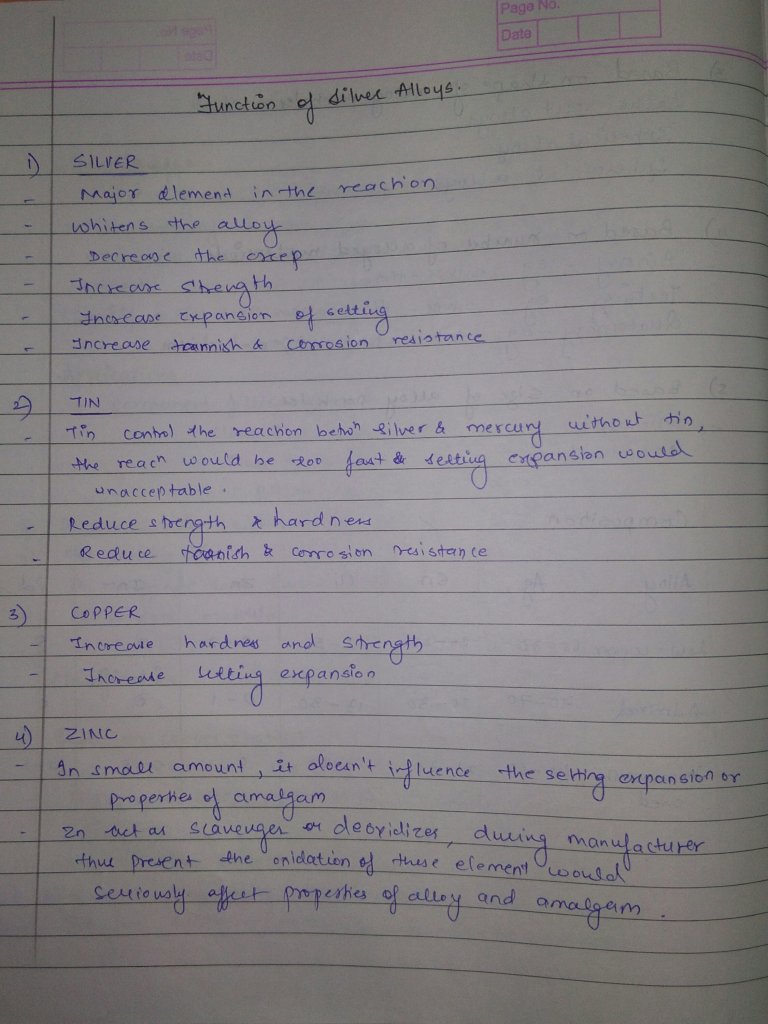 Page No.
Date
Function of Silver Alloys.
1) SILVER
- Major element in the reaction
- Whitens the alloy
- Decrease the creep
- Increase strength
- Increase expansion of setting
- Increase tarnish & corrosion resistance
2) TIN
- Tin control the reaction betwn silver & mercury without tin,
the reacn would be too fast & setting expansion would
unacceptable.
- Reduce strength & hardness
- Reduce tarnish & corrosion resistance
3) COPPER
- Increase hardness and strength
- Increase setting expansion
4) ZINC
- In small amount, it doesn't influence the setting expansion or
properties of amalgam
- Zn act as scavenger or deoxidizer, during manufacturer
thus present the oxidation of these element would
seriously affect properties of alloy and amalgam.